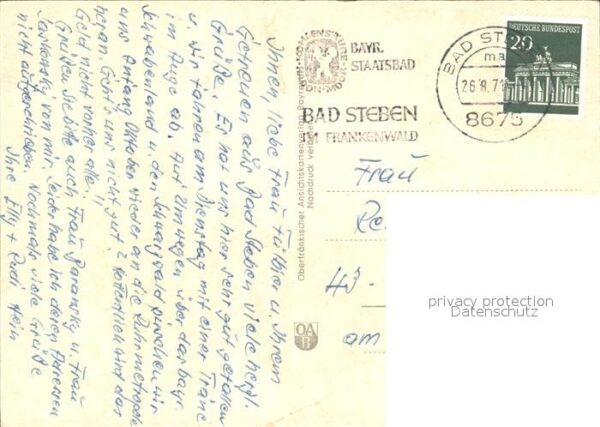 Ihnen, liebe Frau Füther u. Ihrem
Getreuen aus Bad Steben viele herzl.
Grüße. Es hat uns hier sehr gut gefallen
u. wir fahren am Dienstag mit einer Träne
im Auge ab. Auf Umwegen über das bayr.
Schwabenland u. den Schwarzwald pirschen wir
uns Anfang Oktober wieder an die Ruhrmetropole
heran. Geht's uns nicht gut? Hoffentlich wird das
Geld nicht vorher alle!!
Grüßen Sie bitte auch Frau u. Frau
von mir. Leider habe ich deren Adressen
nicht aufgeschrieben. Nochmals viele Grüße
Ihre Elly + Rudi
BAYR.
STAATSBAD
BAD STEBEN
IM FRANKENWALD
BAD STE
ma
26.8.71
8675
DEUTSCHE BUNDESPOST
20
Oberfränkischer Ansichtskartenverlag Bayreuth
Nachdruck verboten
OA
B
Frau
Re
43-
am
privacy protection
Datenschutz